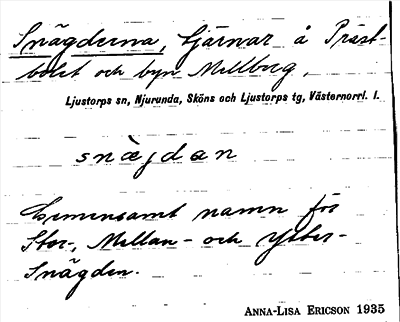 Snägderna, tjärnar å Präst-
bolet och byn Mellberg.
Ljustorps sn, Njurunda, Sköns och Ljustorps tg, Västernorrl. l.
snägdan
Gemensamt namn för
Stor-, Mellan- och Ytter-
Snägden.
ANNA-LISA ERICSON 1935